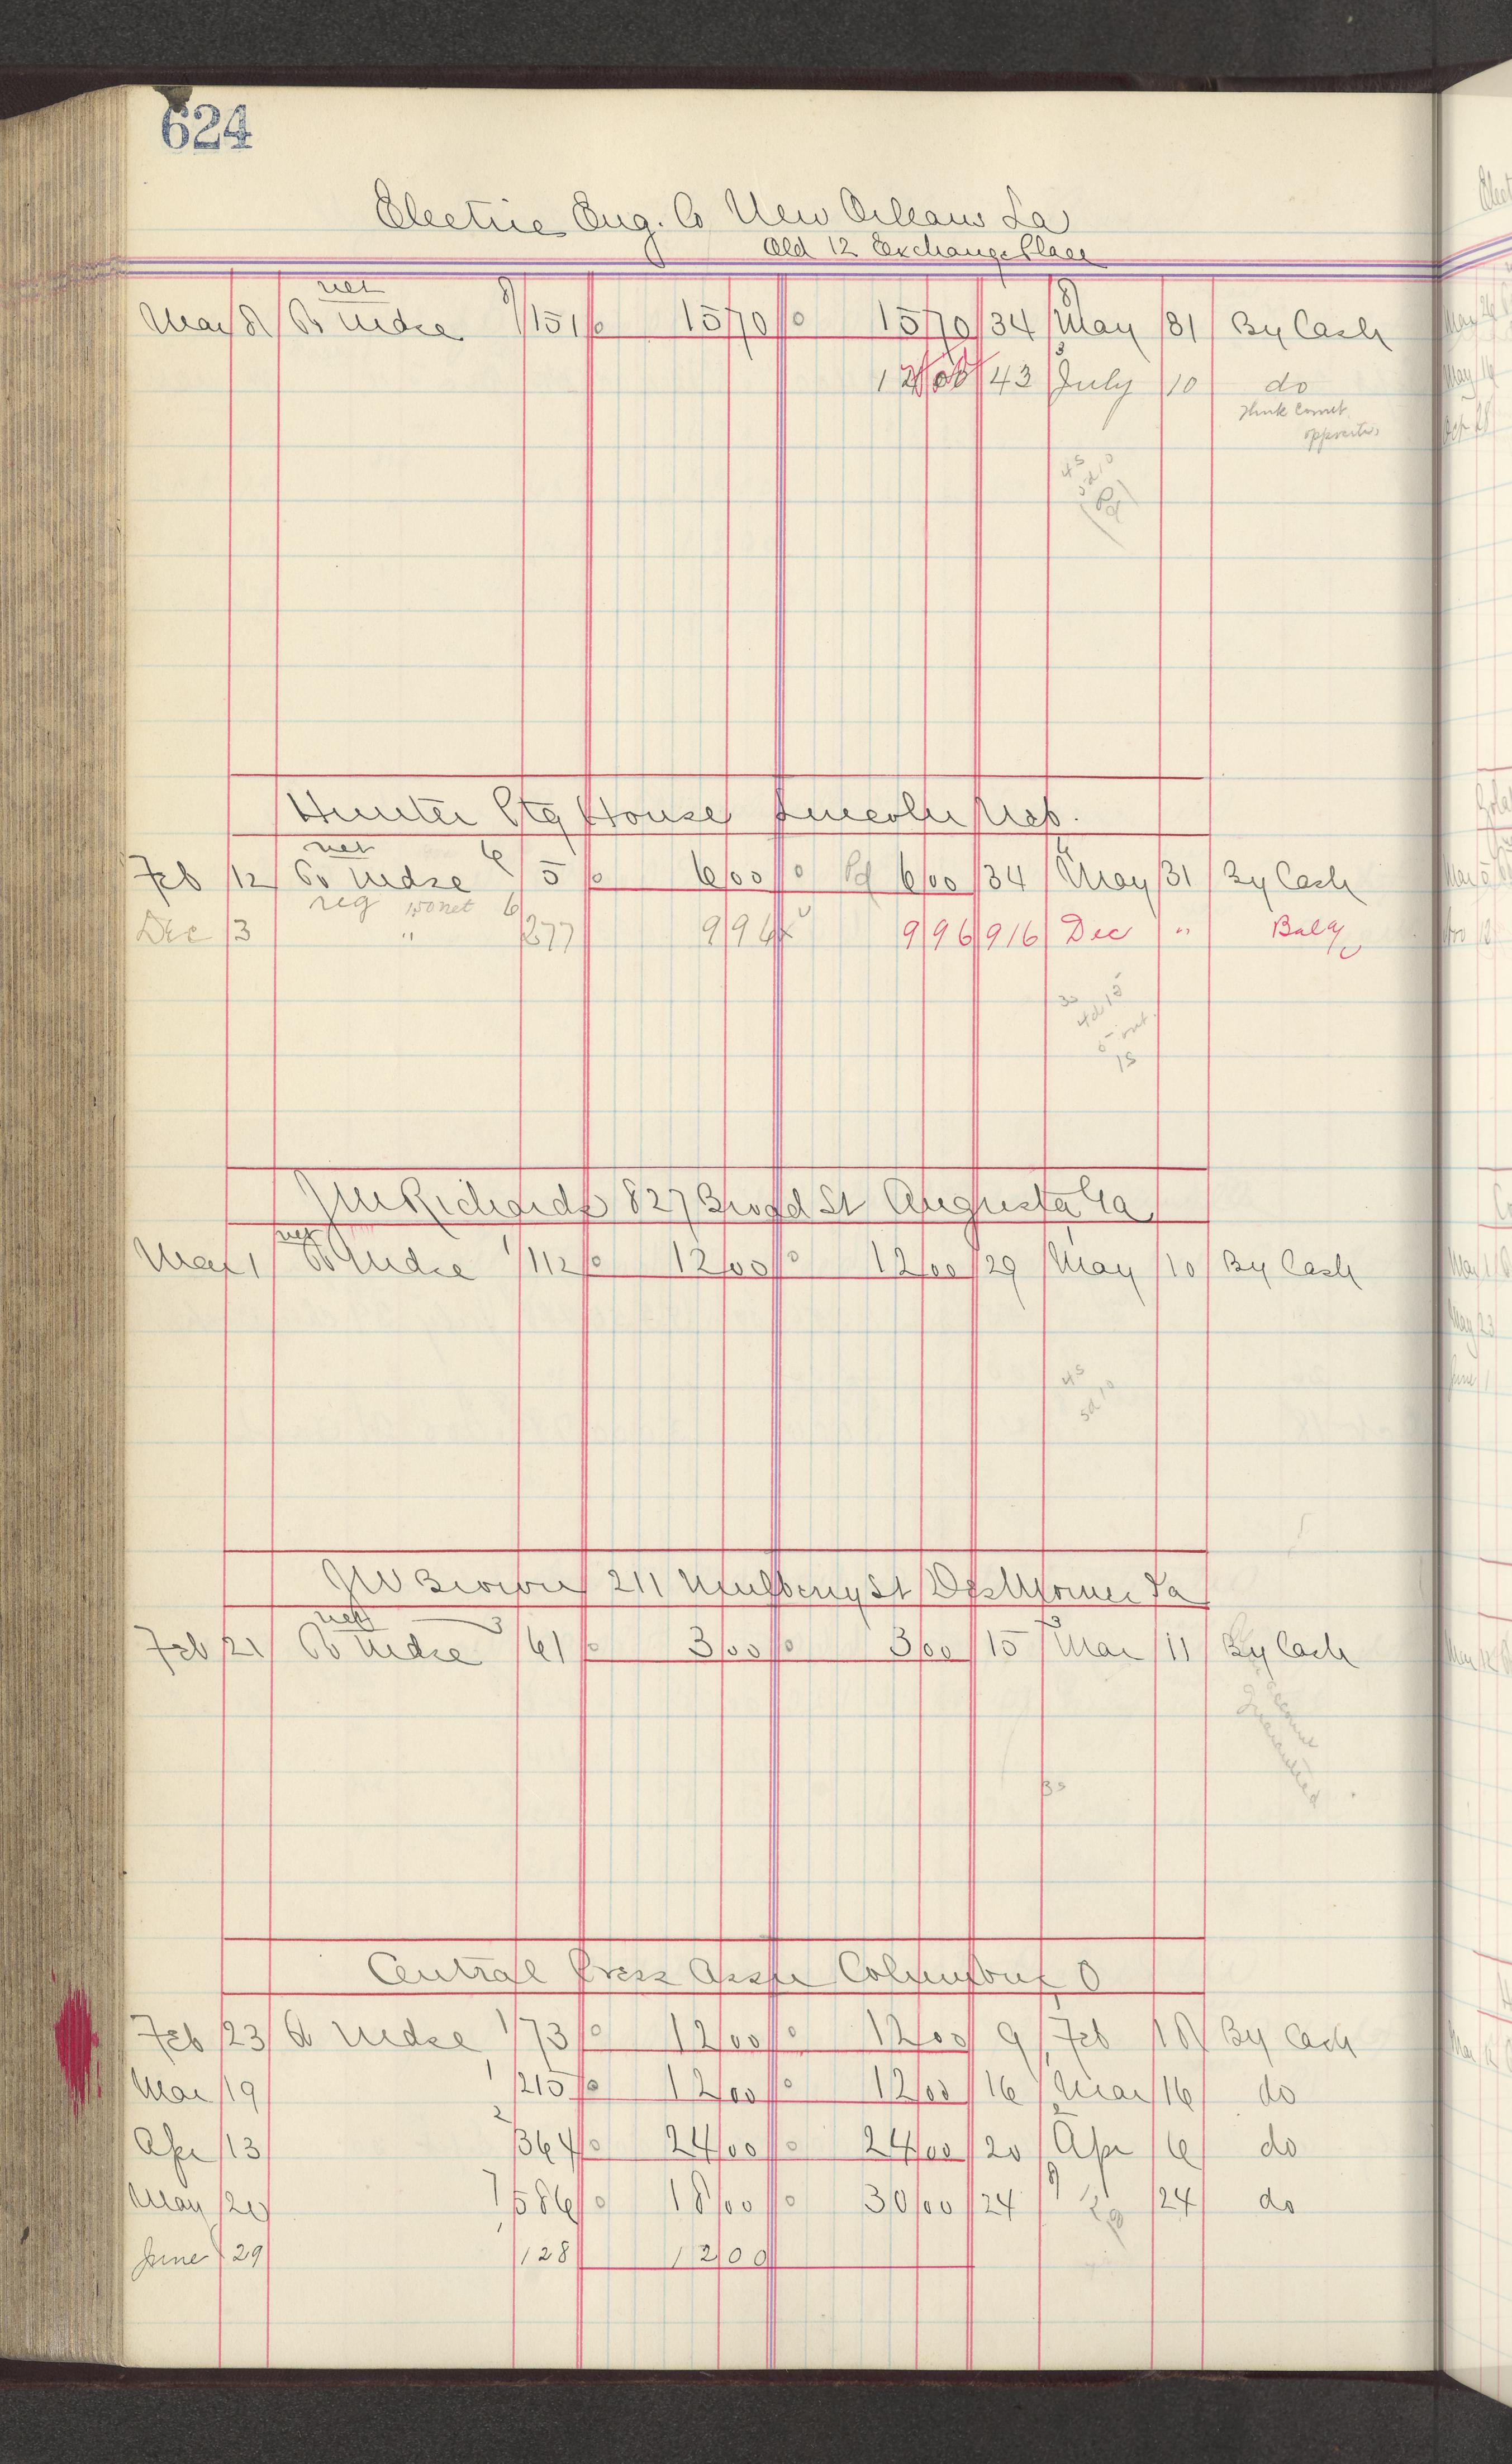 624
Electric Eng. Co New Orleans La
Old 12 Exchange Place
net
Mar 8 To Mdse 8/151 1570 1570 34 8 May 31 By Cash
1200 43 3 July 10 do
think Comet
opposite
45
5d10
(Pd)
Hunter Ptg House Lincoln Neb.
net
Feb 12 To Mdse 6/5 600 Pd 600 34 May 31 By Cash
reg 150 net 6
Dec 3 " 277 996 996 916 Dec " Bal
35
4d15
15
J M Richards 827 Broad St Augusta Ga
net
Mar 1 To Mdse 1/112 1200 1200 29 May 10 By Cash
45
5d10
J W Brown 211 Mulberry St Des Moines Ia
net
Feb 21 To Mdse 3/61 300 300 15 3 Mar 11 By Cash
account
guaranteed
35
Central Press Assn Columbus O
Feb 23 To Mdse 1/73 1200 1200 9 Feb 18 By Cash
Mar 19 1/215 1200 1200 16 Mar 16 do
Apr 13 2/364 2400 2400 20 2 Apr 6 do
May 20 586 1800 3000 24 8 24 do
June 29 128 1200